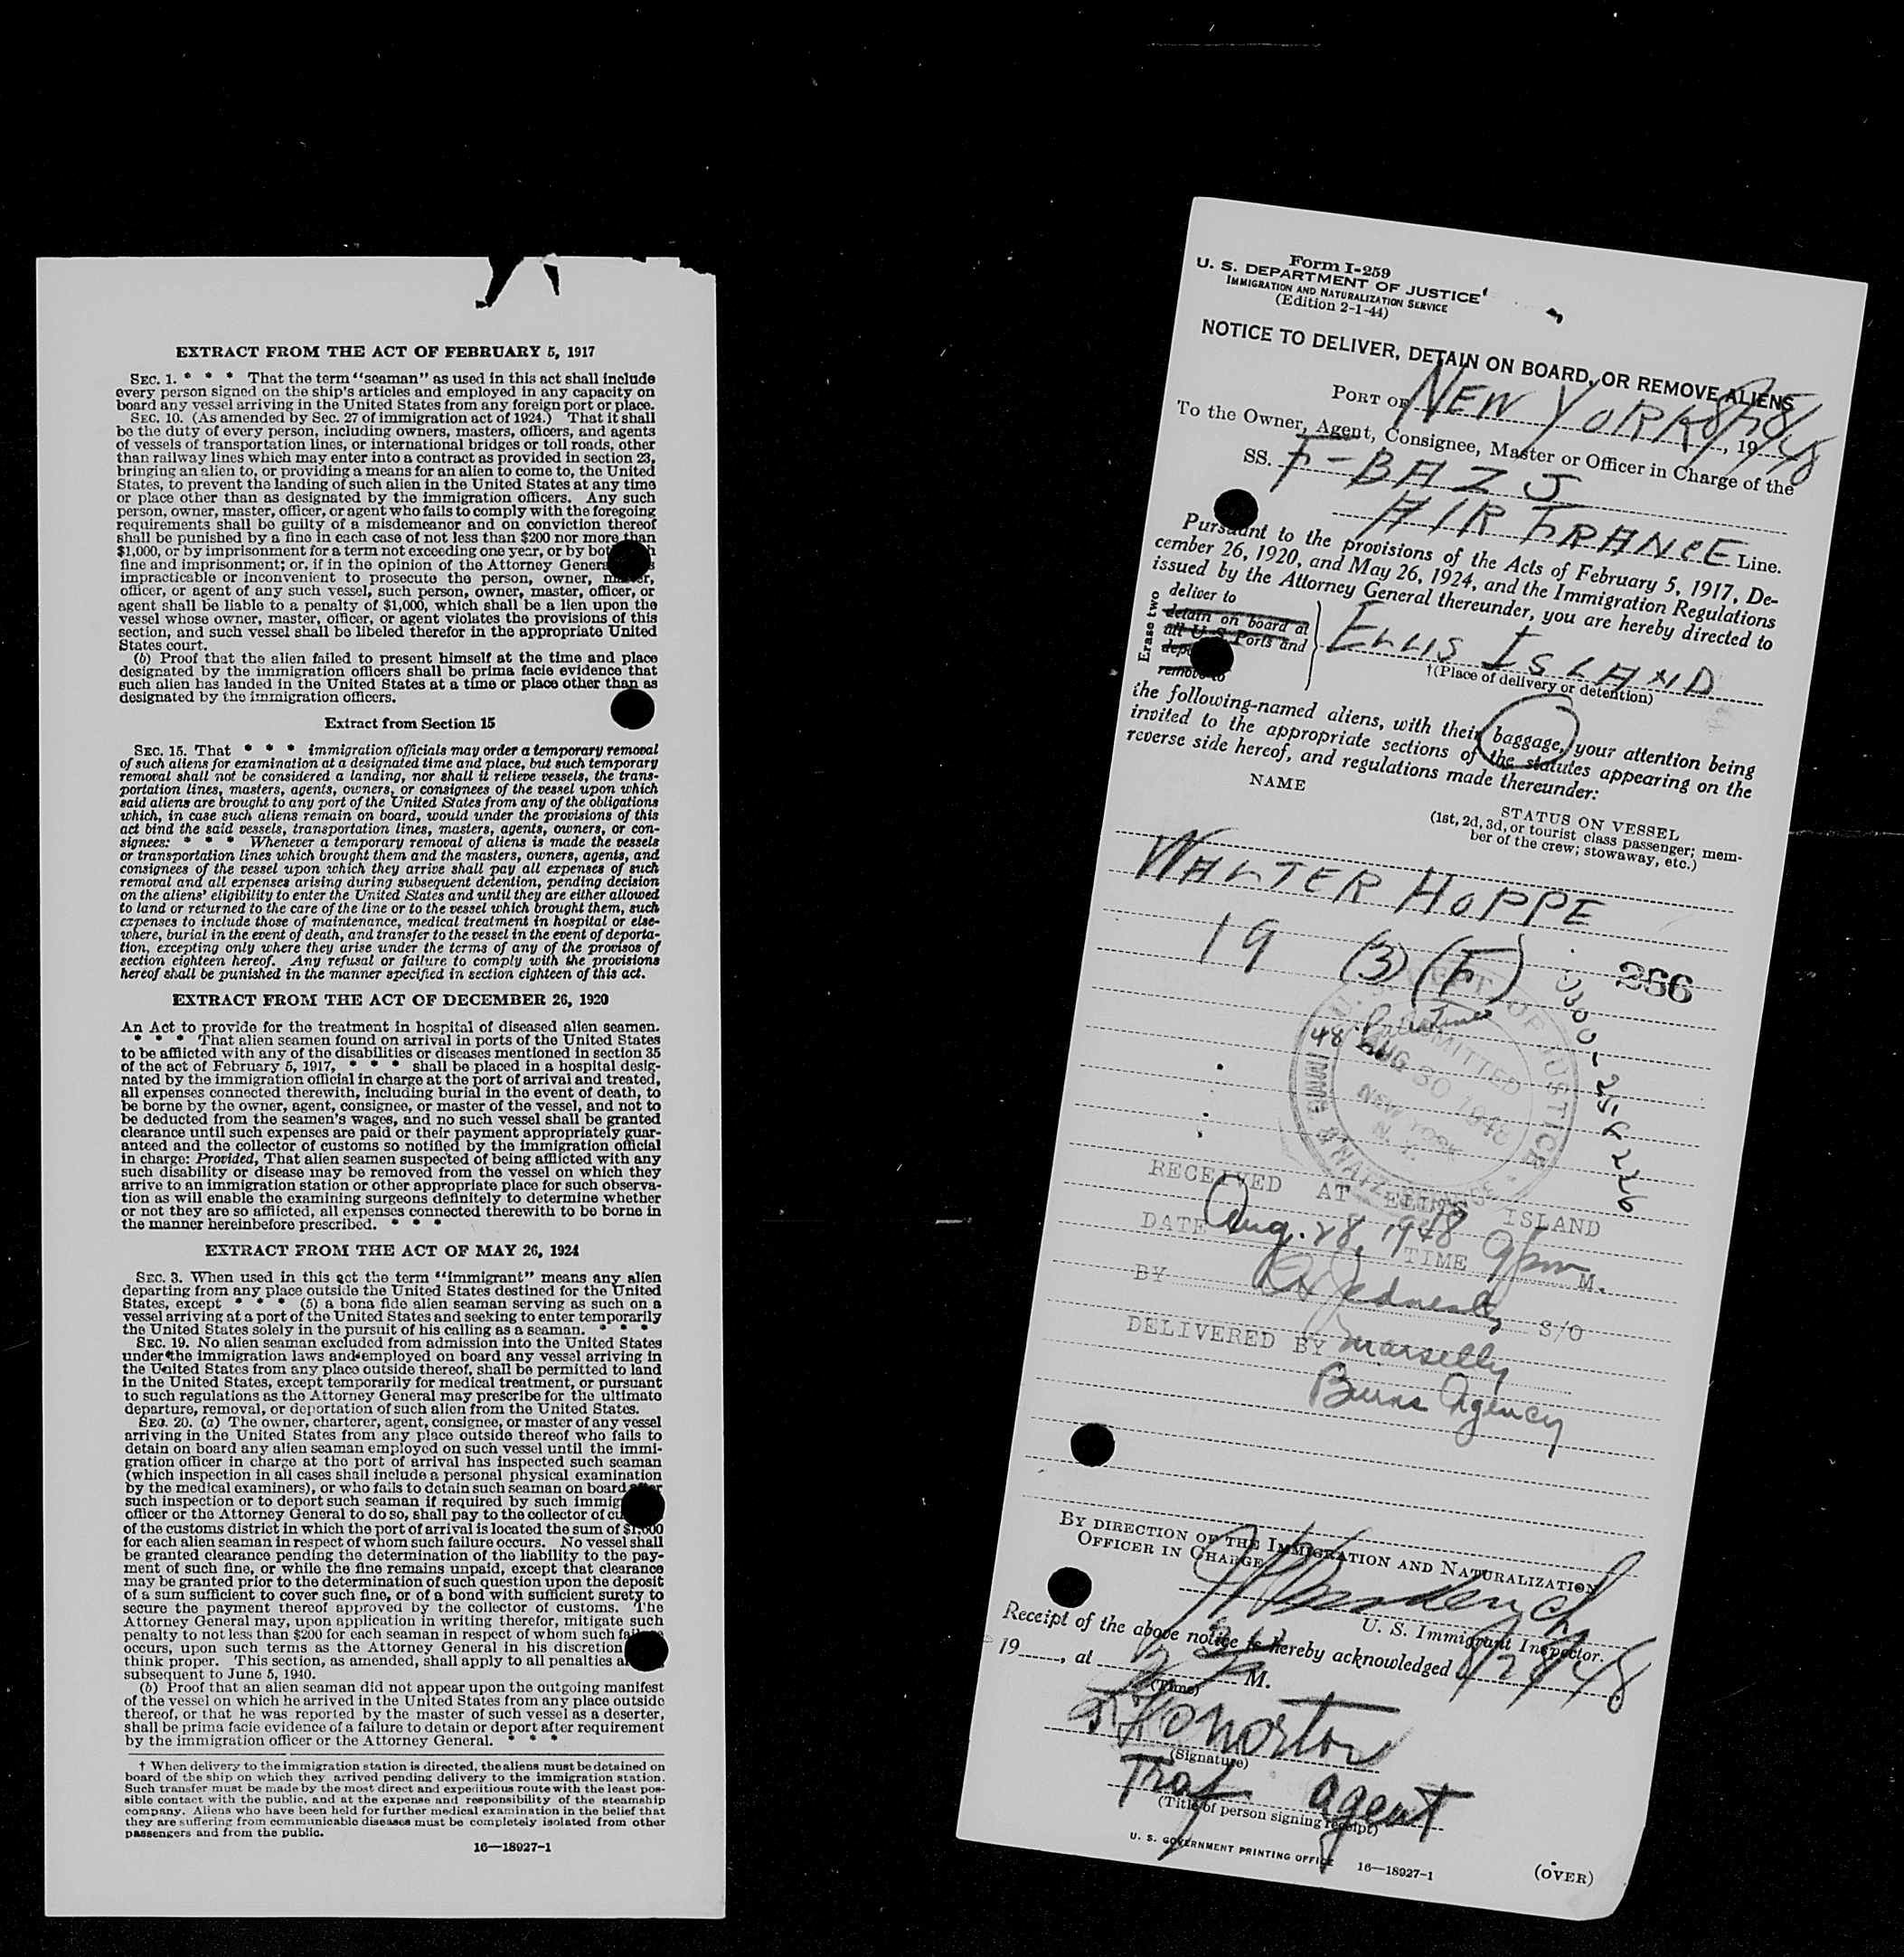 EXTRACT FROM THE ACT OF FEBRUARY 5, 1917
SEC. 1. * * * That the term "seaman" as used in this act shall include
every person signed on the ship's articles and employed in any capacity on
board any vessel arriving in the United States from any foreign port or place.
SEC. 10. (As amended by Sec. 27 of immigration act of 1924.) That it shall
be the duty of every person, including owners, masters, officers, and agents
of vessels of transportation lines, or international bridges or toll roads, other
than railway lines which may enter into a contract as provided in section 23,
bringing an alien to, or providing a means for an alien to come to, the United
States, to prevent the landing of such alien in the United States at any time
or place other than as designated by the immigration officers. Any such
person, owner, master, officer, or agent who fails to comply with the foregoing
requirements shall be guilty of a misdemeanor and on conviction thereof
shall be punished by a fine in each case of not less than $200 nor more than
$1,000, or by imprisonment for a term not exceeding one year, or by both
fine and imprisonment; or, if in the opinion of the Attorney General
impracticable or inconvenient to prosecute the person, owner, master,
officer, or agent of any such vessel, such person, owner, master, officer, or
agent shall be liable to a penalty of $1,000, which shall be a lien upon the
vessel whose owner, master, officer, or agent violates the provisions of this
section, and such vessel shall be libeled therefor in the appropriate United
States court.
(b) Proof that the alien failed to present himself at the time and place
designated by the immigration officers shall be prima facie evidence that
such alien has landed in the United States at a time or place other than as
designated by the immigration officers.
Extract from Section 15
SEC. 15. That * * * immigration officials may order a temporary removal
of such aliens for examination at a designated time and place, but such temporary
removal shall not be considered a landing, nor shall it relieve vessels, the trans-
portation lines, masters, agents, owners, or consignees of the vessel upon which
said aliens are brought to any port of the United States from any of the obligations
which, in case such aliens remain on board, would under the provisions of this
act bind the said vessels, transportation lines, masters, agents, owners, or con-
signees: * * * Whenever a temporary removal of aliens is made the vessels
or transportation lines which brought them and the masters, owners, agents, and
consignees of the vessel upon which they arrive shall pay all expenses of such
removal and all expenses arising during subsequent detention, pending decision
on the aliens' eligibility to enter the United States and until they are either allowed
to land or returned to the care of the line or to the vessel which brought them, such
expenses to include those of maintenance, medical treatment in hospital or else-
where, burial in the event of death, and transfer to the vessel in the event of deporta-
tion, excepting only where they arise under the terms of any of the provisos of
section eighteen hereof. Any refusal or failure to comply with the provisions
hereof shall be punished in the manner specified in section eighteen of this act.
EXTRACT FROM THE ACT OF DECEMBER 26, 1920
An Act to provide for the treatment in hospital of diseased alien seamen.
* * * That alien seamen found on arrival in ports of the United States
to be afflicted with any of the disabilities or diseases mentioned in section 35
of the act of February 5, 1917, * * * shall be placed in a hospital desig-
nated by the immigration official in charge at the port of arrival and treated,
all expenses connected therewith, including burial in the event of death, to
be borne by the owner, agent, consignee, or master of the vessel, and not to
be deducted from the seamen's wages, and no such vessel shall be granted
clearance until such expenses are paid or their payment appropriately guar-
anteed and the collector of customs so notified by the immigration official
in charge: Provided, That alien seamen suspected of being afflicted with any
such disability or disease may be removed from the vessel on which they
arrive to an immigration station or other appropriate place for such observa-
tion as will enable the examining surgeons definitely to determine whether
or not they are so afflicted, all expenses connected therewith to be borne in
the manner hereinbefore prescribed. * * *
EXTRACT FROM THE ACT OF MAY 26, 1924
SEC. 3. When used in this act the term "immigrant" means any alien
departing from any place outside the United States destined for the United
States, except * * * (5) a bona fide alien seaman serving as such on a
vessel arriving at a port of the United States and seeking to enter temporarily
the United States solely in the pursuit of his calling as a seaman. * * *
SEC. 19. No alien seaman excluded from admission into the United States
under the immigration laws and employed on board any vessel arriving in
the United States from any place outside thereof, shall be permitted to land
in the United States, except temporarily for medical treatment, or pursuant
to such regulations as the Attorney General may prescribe for the ultimate
departure, removal, or deportation of such alien from the United States.
SEC. 20. (a) The owner, charterer, agent, consignee, or master of any vessel
arriving in the United States from any place outside thereof who fails to
detain on board any alien seaman employed on such vessel until the immi-
gration officer in charge at the port of arrival has inspected such seaman
(which inspection in all cases shall include a personal physical examination
by the medical examiners), or who fails to detain such seaman on board after
such inspection or to deport such seaman if required by such immig
officer or the Attorney General to do so, shall pay to the collector of cu
of the customs district in which the port of arrival is located the sum of $1,000
for each alien seaman in respect of whom such failure occurs. No vessel shall
be granted clearance pending the determination of the liability to the pay-
ment of such fine, or while the fine remains unpaid, except that clearance
may be granted prior to the determination of such question upon the deposit
of a sum sufficient to cover such fine, or of a bond with sufficient surety to
secure the payment thereof approved by the collector of customs. The
Attorney General may, upon application in writing therefor, mitigate such
penalty to not less than $200 for each seaman in respect of whom such failure
occurs, upon such terms as the Attorney General in his discretion
think proper. This section, as amended, shall apply to all penalties a
subsequent to June 5, 1940.
(b) Proof that an alien seaman did not appear upon the outgoing manifest
of the vessel on which he arrived in the United States from any place outside
thereof, or that he was reported by the master of such vessel as a deserter,
shall be prima facie evidence of a failure to detain or deport after requirement
by the immigration officer or the Attorney General. * * *
† When delivery to the immigration station is directed, the aliens must be detained on
board of the ship on which they arrived pending delivery to the immigration station.
Such transfer must be made by the most direct and expeditious route with the least pos-
sible contact with the public, and at the expense and responsibility of the steamship
company. Aliens who have been held for further medical examination in the belief that
they are suffering from communicable diseases must be completely isolated from other
passengers and from the public.
16—18927-1
Form I-259
U. S. DEPARTMENT OF JUSTICE
IMMIGRATION AND NATURALIZATION SERVICE
(Edition 2-1-44)
NOTICE TO DELIVER, DETAIN ON BOARD, OR REMOVE ALIENS
PORT OF NEW YORK 8/28/48, 19
To the Owner, Agent, Consignee, Master or Officer in Charge of the
SS. F-BAZJ
AIR FRANCE Line.
Pursuant to the provisions of the Acts of February 5, 1917, De-
cember 26, 1920, and May 26, 1924, and the Immigration Regulations
issued by the Attorney General thereunder, you are hereby directed to
Erase two
deliver to
detain on board at
all U S Ports and
remove to
ELLIS ISLAND
†(Place of delivery or detention)
the following-named aliens, with their baggage, your attention being
invited to the appropriate sections of the statutes appearing on the
reverse side hereof, and regulations made thereunder:
NAME
STATUS ON VESSEL
(1st, 2d, 3d, or tourist class passenger; mem-
ber of the crew; stowaway, etc.)
WALTER HOPPE
19 (3) (F) 266
48
U. S. DEPT OF JUSTICE
ADMITTED
AUG 30 1948
NEW YORK
N. Y.
RECEIVED AT ELLIS ISLAND
DATE Aug. 28, 1948 TIME 9 pm M.
BY S/O
DELIVERED BY
Burns Agency
BY DIRECTION OF THE IMMIGRATION AND NATURALIZATION
OFFICER IN CHARGE
U. S. Immigrant Inspector.
Receipt of the above notice is hereby acknowledged 8/28/48
19___, at M.
(Time)
(Signature)
Traf Agent
(Title of person signing receipt)
U. S. GOVERNMENT PRINTING OFFICE 16—18927-1
(OVER)